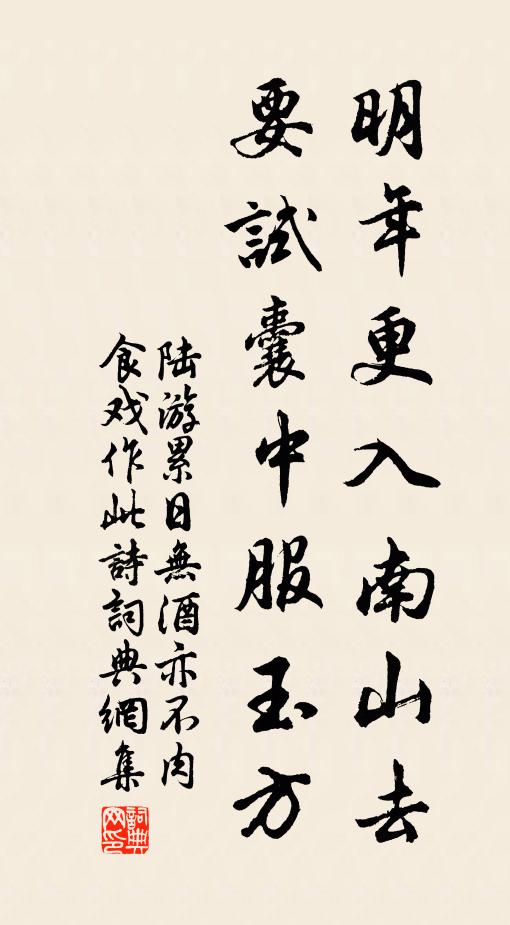 明年更入南山去
要試囊中服玉方
陆游累日無酒亦不肉
食戏作此詩詞典網集
詞典网印